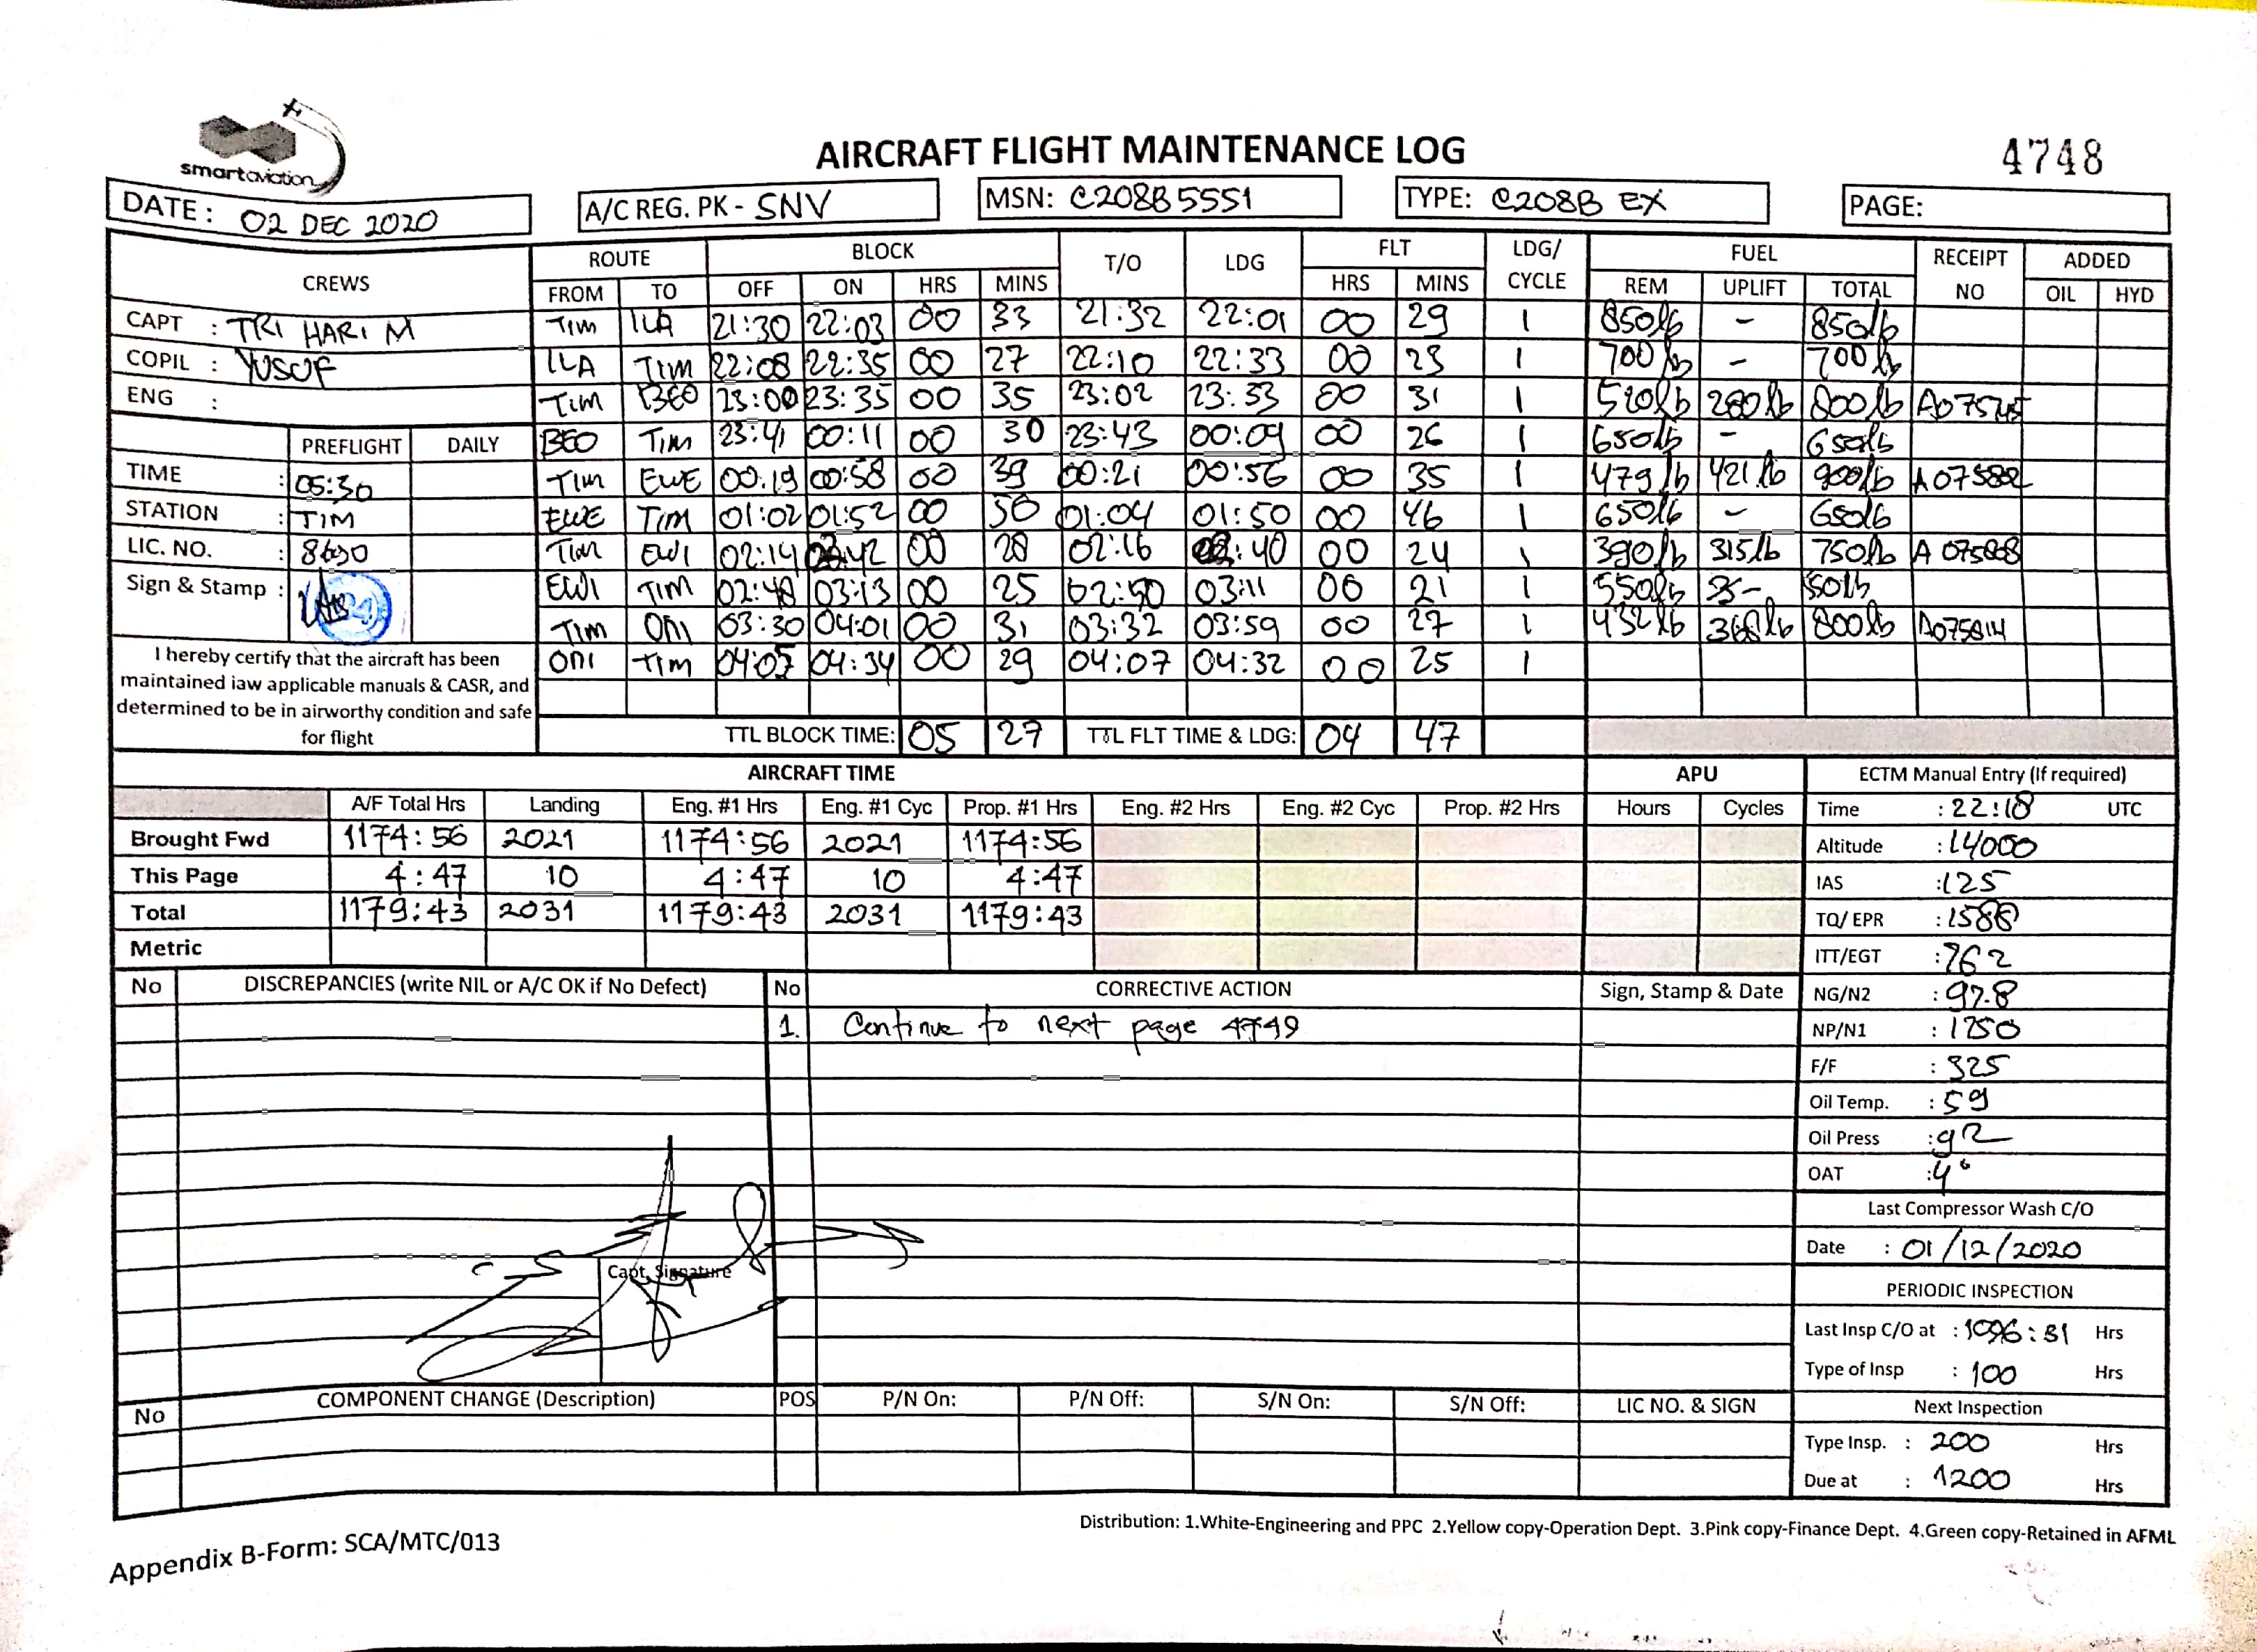 smartaviation
AIRCRAFT FLIGHT MAINTENANCE LOG
4748
DATE: 02 DEC 2020
A/C REG. PK - SNV
MSN: C208B5551
TYPE: C208B EX
PAGE:
CREWS
ROUTE BLOCK T/O LDG FLT LDG/ CYCLE FUEL RECEIPT NO ADDED
FROM TO OFF ON HRS MINS HRS MINS REM UPLIFT TOTAL OIL HYD
CAPT : TRI HARI M
COPIL : YUSUF
ENG :
TIM ILA 21:30 22:03 00 33 21:32 22:01 00 29 1 850lb - 850lb
ILA TIM 22:08 22:35 00 27 22:10 22:33 00 23 1 700lb - 700lb
TIM BEO 23:00 23:35 00 35 23:02 23:33 00 31 1 520lb 280lb 800lb
BEO TIM 23:41 00:11 00 30 23:43 00:09 00 26 1 650lb - 650lb
TIM EWE 00:19 00:58 00 39 00:21 00:56 00 35 1 479lb 421lb 900lb
EWE TIM 01:02 01:52 00 50 01:04 01:50 00 46 1 650lb - 650lb
TIM EWI 02:14 02:42 00 28 02:16 02:40 00 24 1 315lb 750lb
EWI TIM 02:48 03:13 00 25 02:50 03:11 00 21 1 550lb
TIM ONI 03:30 04:01 00 31 03:32 03:59 00 27 1 432lb 368lb 800lb
ONI TIM 04:05 04:34 00 29 04:07 04:32 00 25 1
PREFLIGHT DAILY
TIME : 05:30
STATION : TIM
LIC. NO. :
Sign & Stamp :
I hereby certify that the aircraft has been
maintained iaw applicable manuals & CASR, and
determined to be in airworthy condition and safe
for flight
TTL BLOCK TIME: 05 27 TTL FLT TIME & LDG: 04 47
AIRCRAFT TIME APU
A/F Total Hrs Landing Eng. #1 Hrs Eng. #1 Cyc Prop. #1 Hrs Eng. #2 Hrs Eng. #2 Cyc Prop. #2 Hrs Hours Cycles
Brought Fwd 1174:56 2021 1174:56 2021 1174:56
This Page 4:47 10 4:47 10 4:47
Total 1179:43 2031 1179:43 2031 1179:43
Metric
ECTM Manual Entry (If required)
Time : 22:18 UTC
Altitude : 14000
IAS : 125
TQ/ EPR : 1588
ITT/EGT : 762
NG/N2 : 97.8
NP/N1 : 1750
F/F : 325
Oil Temp. : 59
Oil Press : 92
OAT : 4°
Last Compressor Wash C/O
Date : 01/12/2020
PERIODIC INSPECTION
Last Insp C/O at : 1096:31 Hrs
Type of Insp : 100 Hrs
Next Inspection
Type Insp. : 200 Hrs
Due at : 1200 Hrs
No DISCREPANCIES (write NIL or A/C OK if No Defect) No CORRECTIVE ACTION Sign, Stamp & Date
1. Continue to next page 4749
Capt. Signature
No COMPONENT CHANGE (Description) POS P/N On: P/N Off: S/N On: S/N Off: LIC NO. & SIGN
Distribution: 1.White-Engineering and PPC 2.Yellow copy-Operation Dept. 3.Pink copy-Finance Dept. 4.Green copy-Retained in AFML
Appendix B-Form: SCA/MTC/013